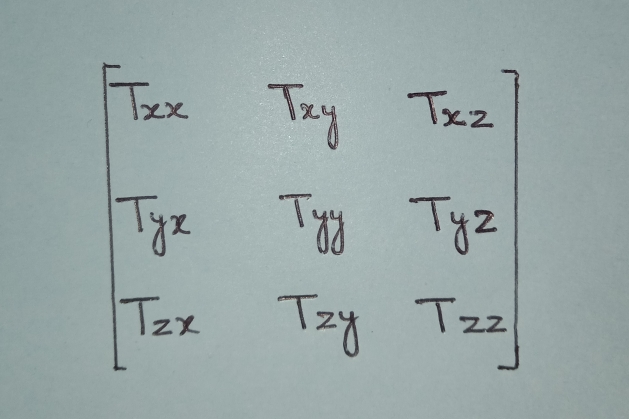 Txx Txy Txz
Tyx Tyy Tyz
Tzx Tzy Tzz